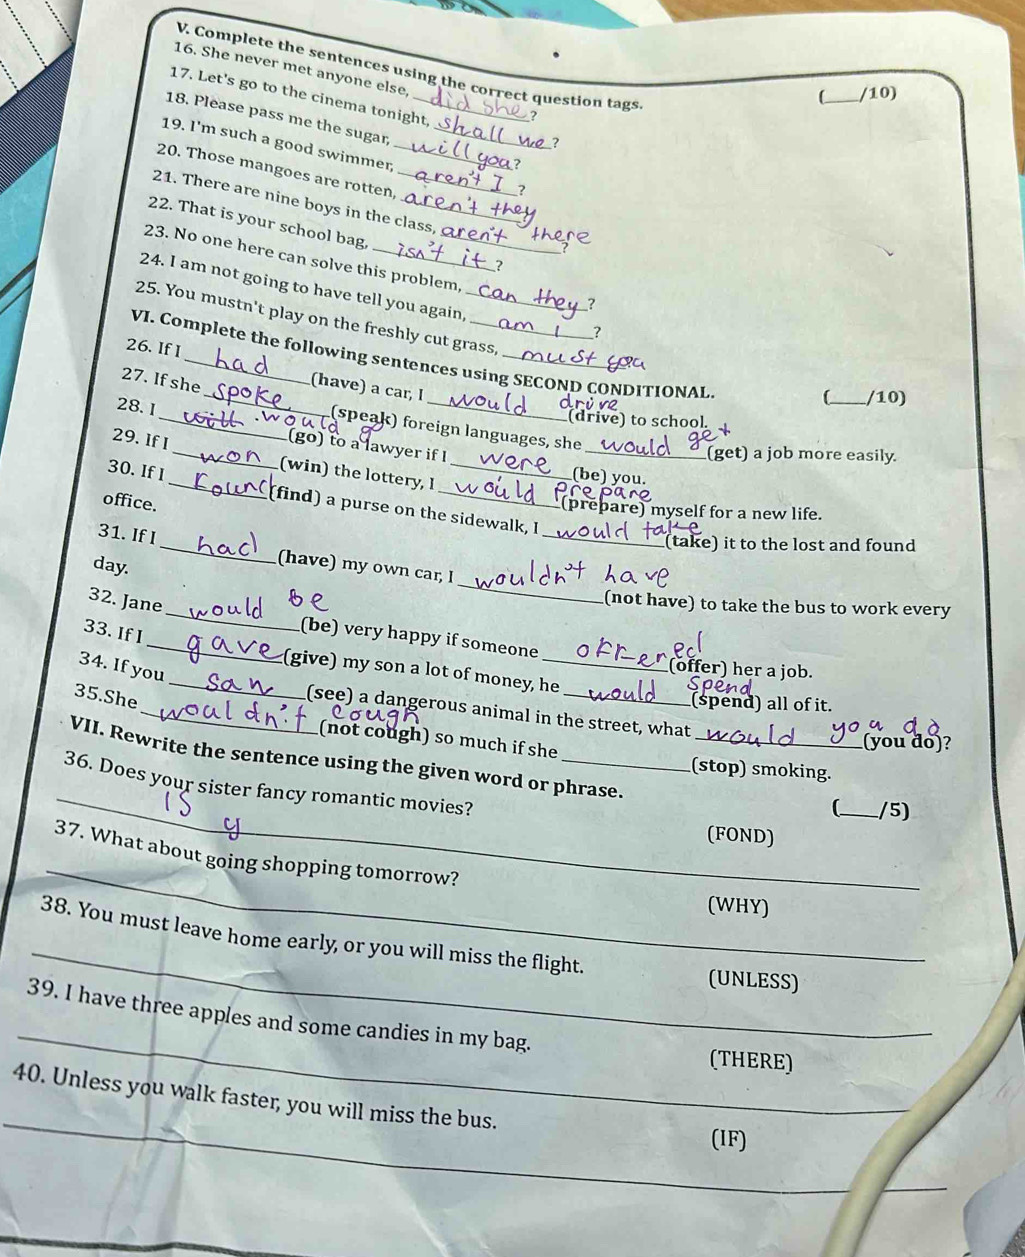 V. Complete the sentences using the correct question tags. (____/10)
16. She never met anyone else, did she?
17. Let's go to the cinema tonight, shall we?
18. Please pass me the sugar, will you?
19. I'm such a good swimmer, aren't I?
20. Those mangoes are rotten, aren't they
21. There are nine boys in the class, aren't there?
22. That is your school bag, isn't it?
23. No one here can solve this problem, can they?
24. I am not going to have tell you again, am I?
25. You mustn't play on the freshly cut grass, must you
VI. Complete the following sentences using SECOND CONDITIONAL. (____/10)
26. If I had (have) a car, I would drive (drive) to school.
27. If she spoke (speak) foreign languages, she would get (get) a job more easily.
28. I would g (go) to a lawyer if I were (be) you.
29. If I won (win) the lottery, I would prepare (prepare) myself for a new life.
30. If I found (find) a purse on the sidewalk, I would take (take) it to the lost and found
office.
31. If I had (have) my own car, I wouldn't have (not have) to take the bus to work every
day.
32. Jane would be (be) very happy if someone offered (offer) her a job.
33. If I gave (give) my son a lot of money, he would spend (spend) all of it.
34. If you saw (see) a dangerous animal in the street, what would you do (you do)?
35.She wouldn't cough (not cough) so much if she ____ (stop) smoking.
VII. Rewrite the sentence using the given word or phrase. (____/5)
36. Does your sister fancy romantic movies? (FOND)
Is y
37. What about going shopping tomorrow? (WHY)
38. You must leave home early, or you will miss the flight. (UNLESS)
39. I have three apples and some candies in my bag. (THERE)
40. Unless you walk faster, you will miss the bus. (IF)